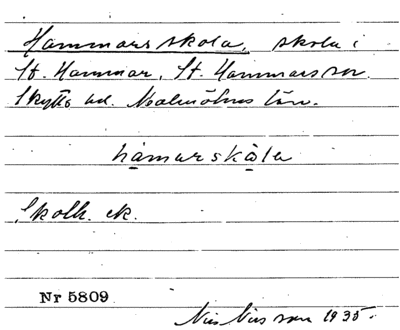 Hammars skola, skola i
St. Hammar, St. Hammars sn.
Skytts hd. Malmöhus län.
hamarskåla
Skolk. ek.
Nr 5809
Nils Nilsson 1935.